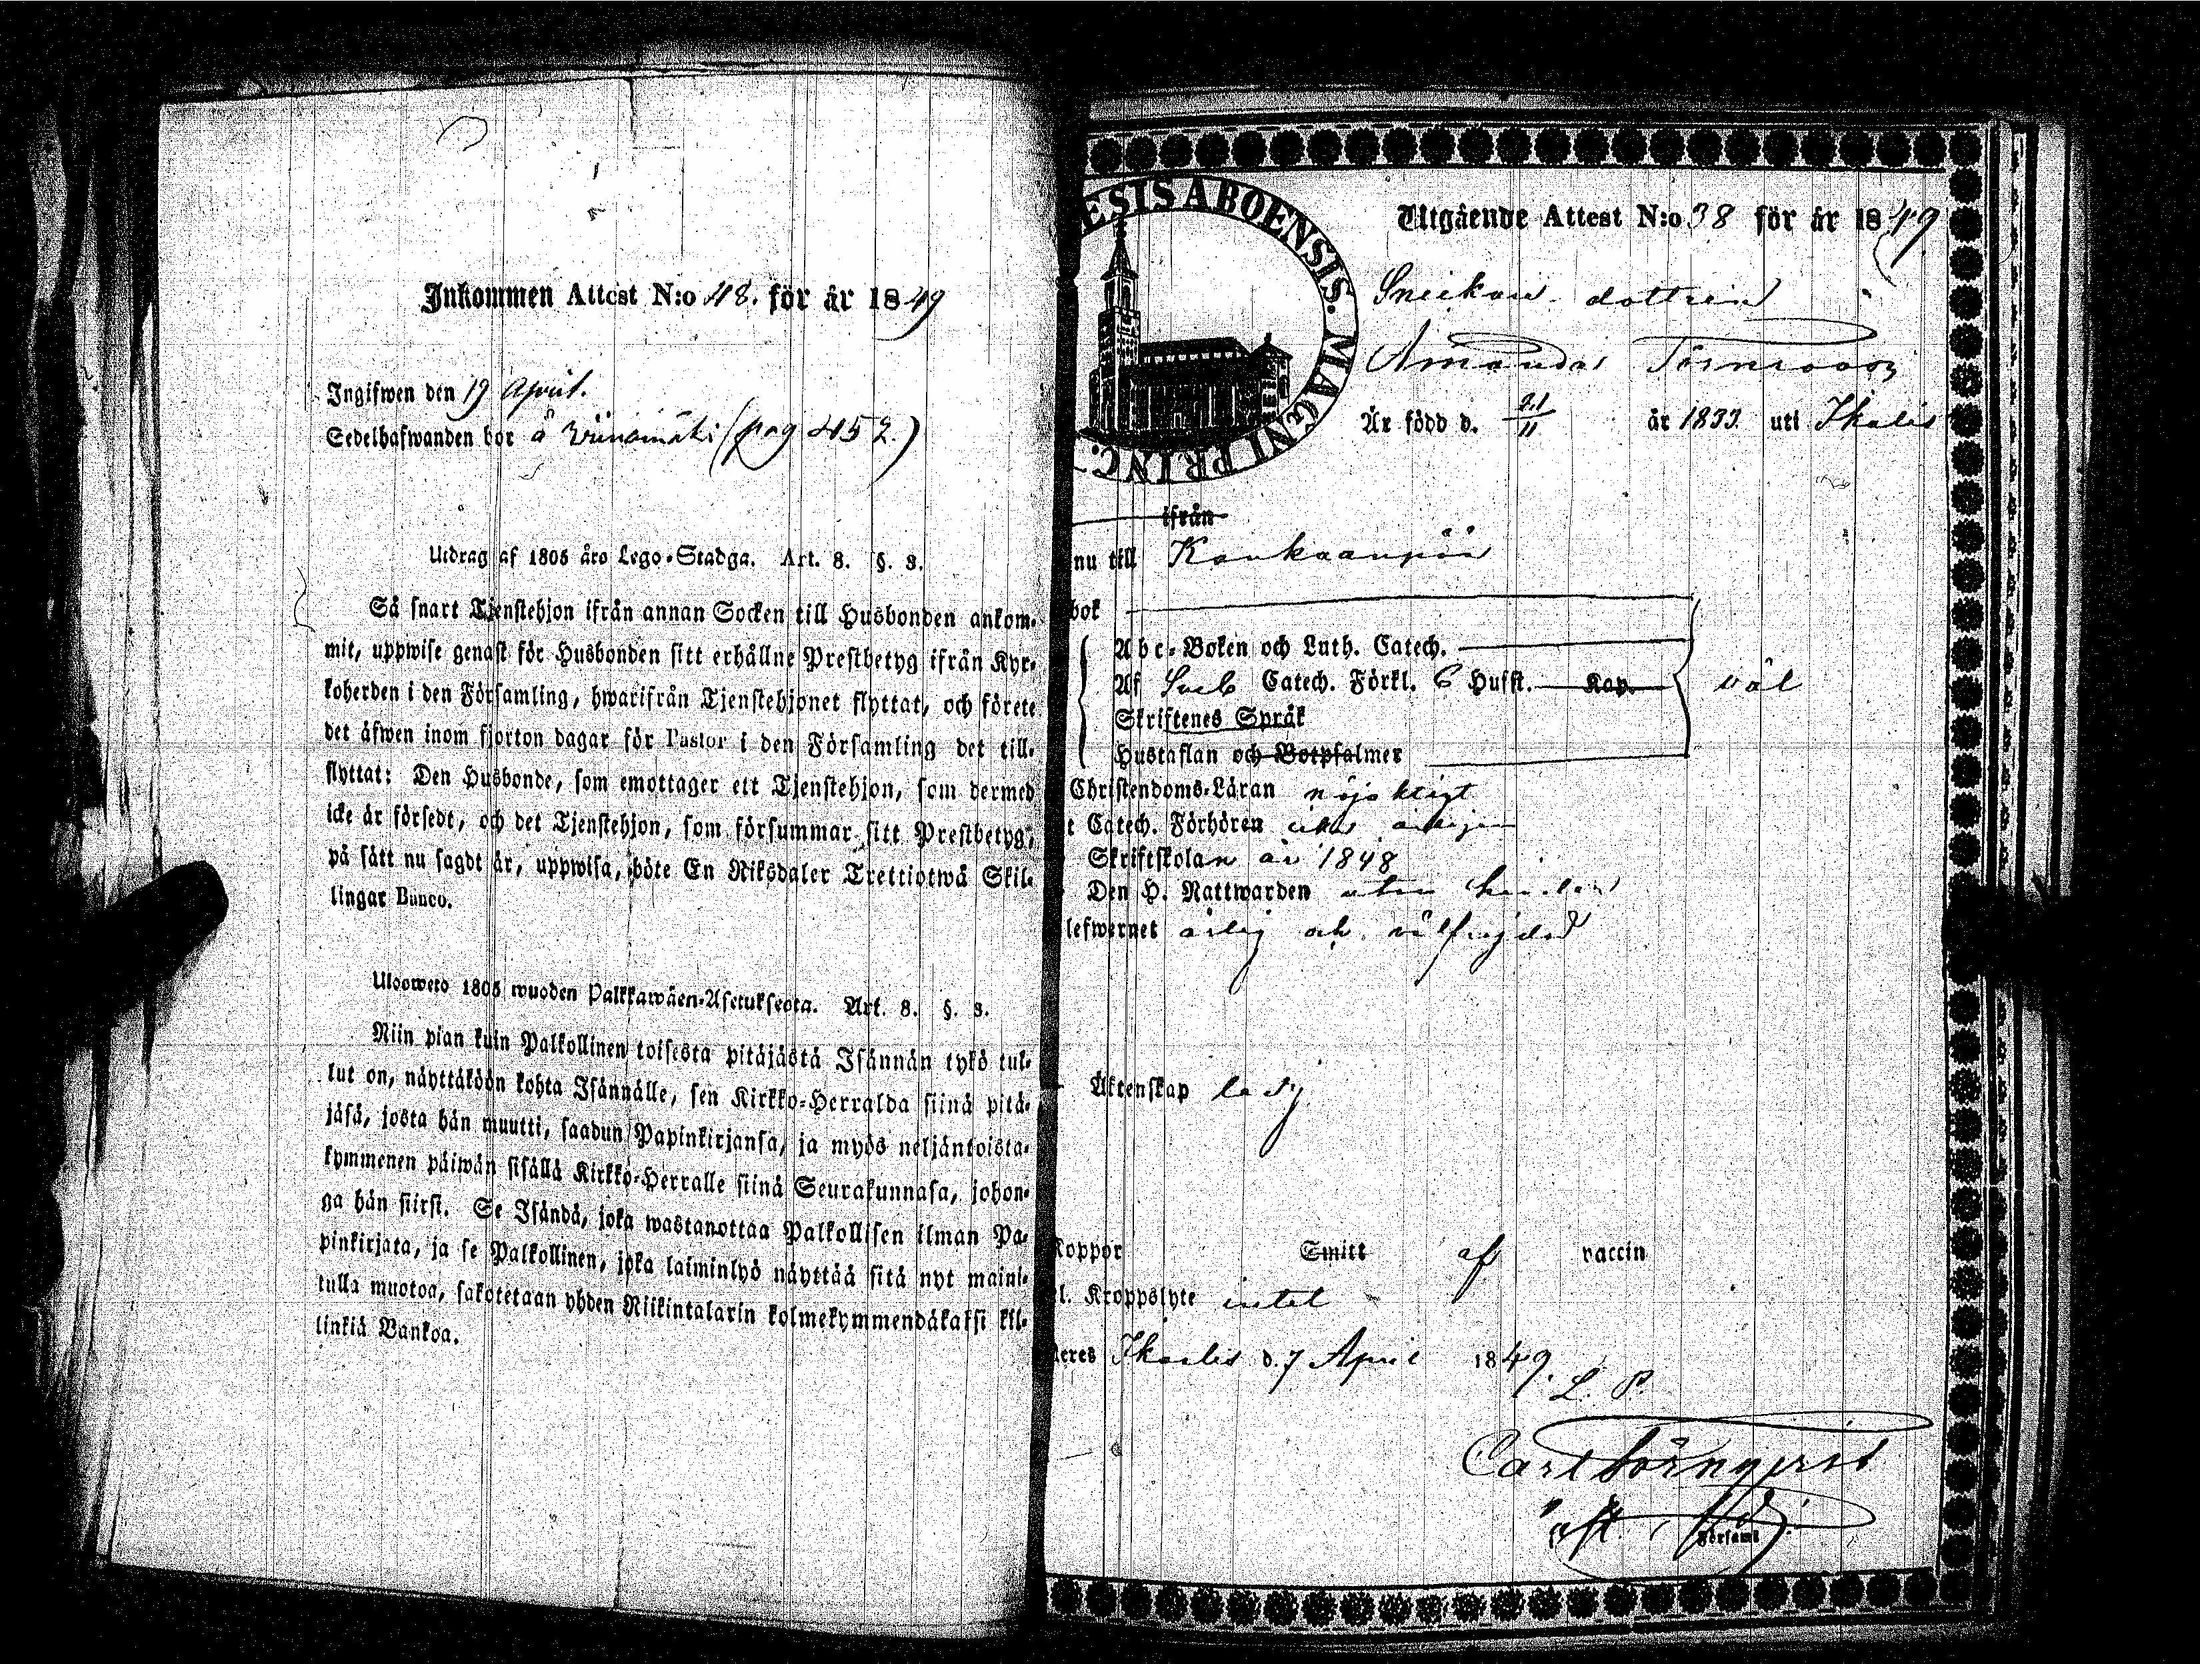 Inkommen Attest N:o 48. för år 1849
Ingifwen den 19 April.
Sedelhafwanden bor å (pag 452.)
Utdrag af 1805 års Lego-Stadga. Art. 8. §. 3.
Så snart Tjenstehjon ifrån annan Socken till Husbonden ankom-
mit, uppwise genast för Husbonden sitt erhållne Prestbetyg ifrån Kyr-
koherden i den Församling, hwarifrån Tjenstehjonet flyttat, och förete
det äfwen inom fjorton dagar för Pastor i den Församling det till-
flyttat: Den Husbonde, som emottager ett Tjenstehjon, som dermed
icke är försedt, och det Tjenstehjon, som försummar sitt Prestbetyg,
på sätt nu sagdt är, uppwisa, böte En Riksdaler Trettiotwå Skil-
lingar Banco.
Ulosweto 1805 wuoden Palkkawäen-Asetuksesta. Art. 8. §. 3.
Niin pian kuin Palkollinen toisesta pitäjästä Isännän tykö tul-
lut on, näyttäköön kohta Isännälle, sen Kirkko-Herralda siinä pitä-
jäsä, josta hän muutti, saadun Papinkirjansa, ja myös neljäntoista-
kymmenen päiwän sisällä Kirkko-Herralle siinä Seurakunnasa, johon-
ga hän siirsi. Se Isändä, joka wastanottaa Palkollisen ilman Pa-
pinkirjata, ja se Palkollinen, joka laiminlyö näyttää sitä nyt maini-
tulla muotoa, sakotetaan yhden Riikintalarin kolmekymmendäkaksi kil-
linkiä Bankoa.
ESIS ABOENSIS. MAGNI PRINC.
Utgående Attest N:o 38 för år 1849
dottren
Amanda Törnroos
Är född d. 21/11 år 1833. uti Ikalis
ifrån
nu till Kankaanpää
bok
Abc-Boken och Luth. Catech.
Af Sveb Catech. Förkl. Husst. Kap. väl
Skriftenes Språk
Hustaflan och Botpsalmer
Christendoms-Läran nöjaktigt
t Catech. Förhören
Skriftskolan år 1848
Den H. Nattwarden utan hinder
lefwernet ärlig och välfrejdad
Äktenskap ledig
Koppor Smitt af vaccin
l. Kroppslyte intet
eres Ikalis d. 7 April 1849.
L. P.
Carl Törnqvist
Församl